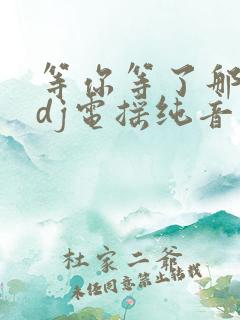 等你等了那
dj电摇纯音
杜家二爷
未经同意禁止转载